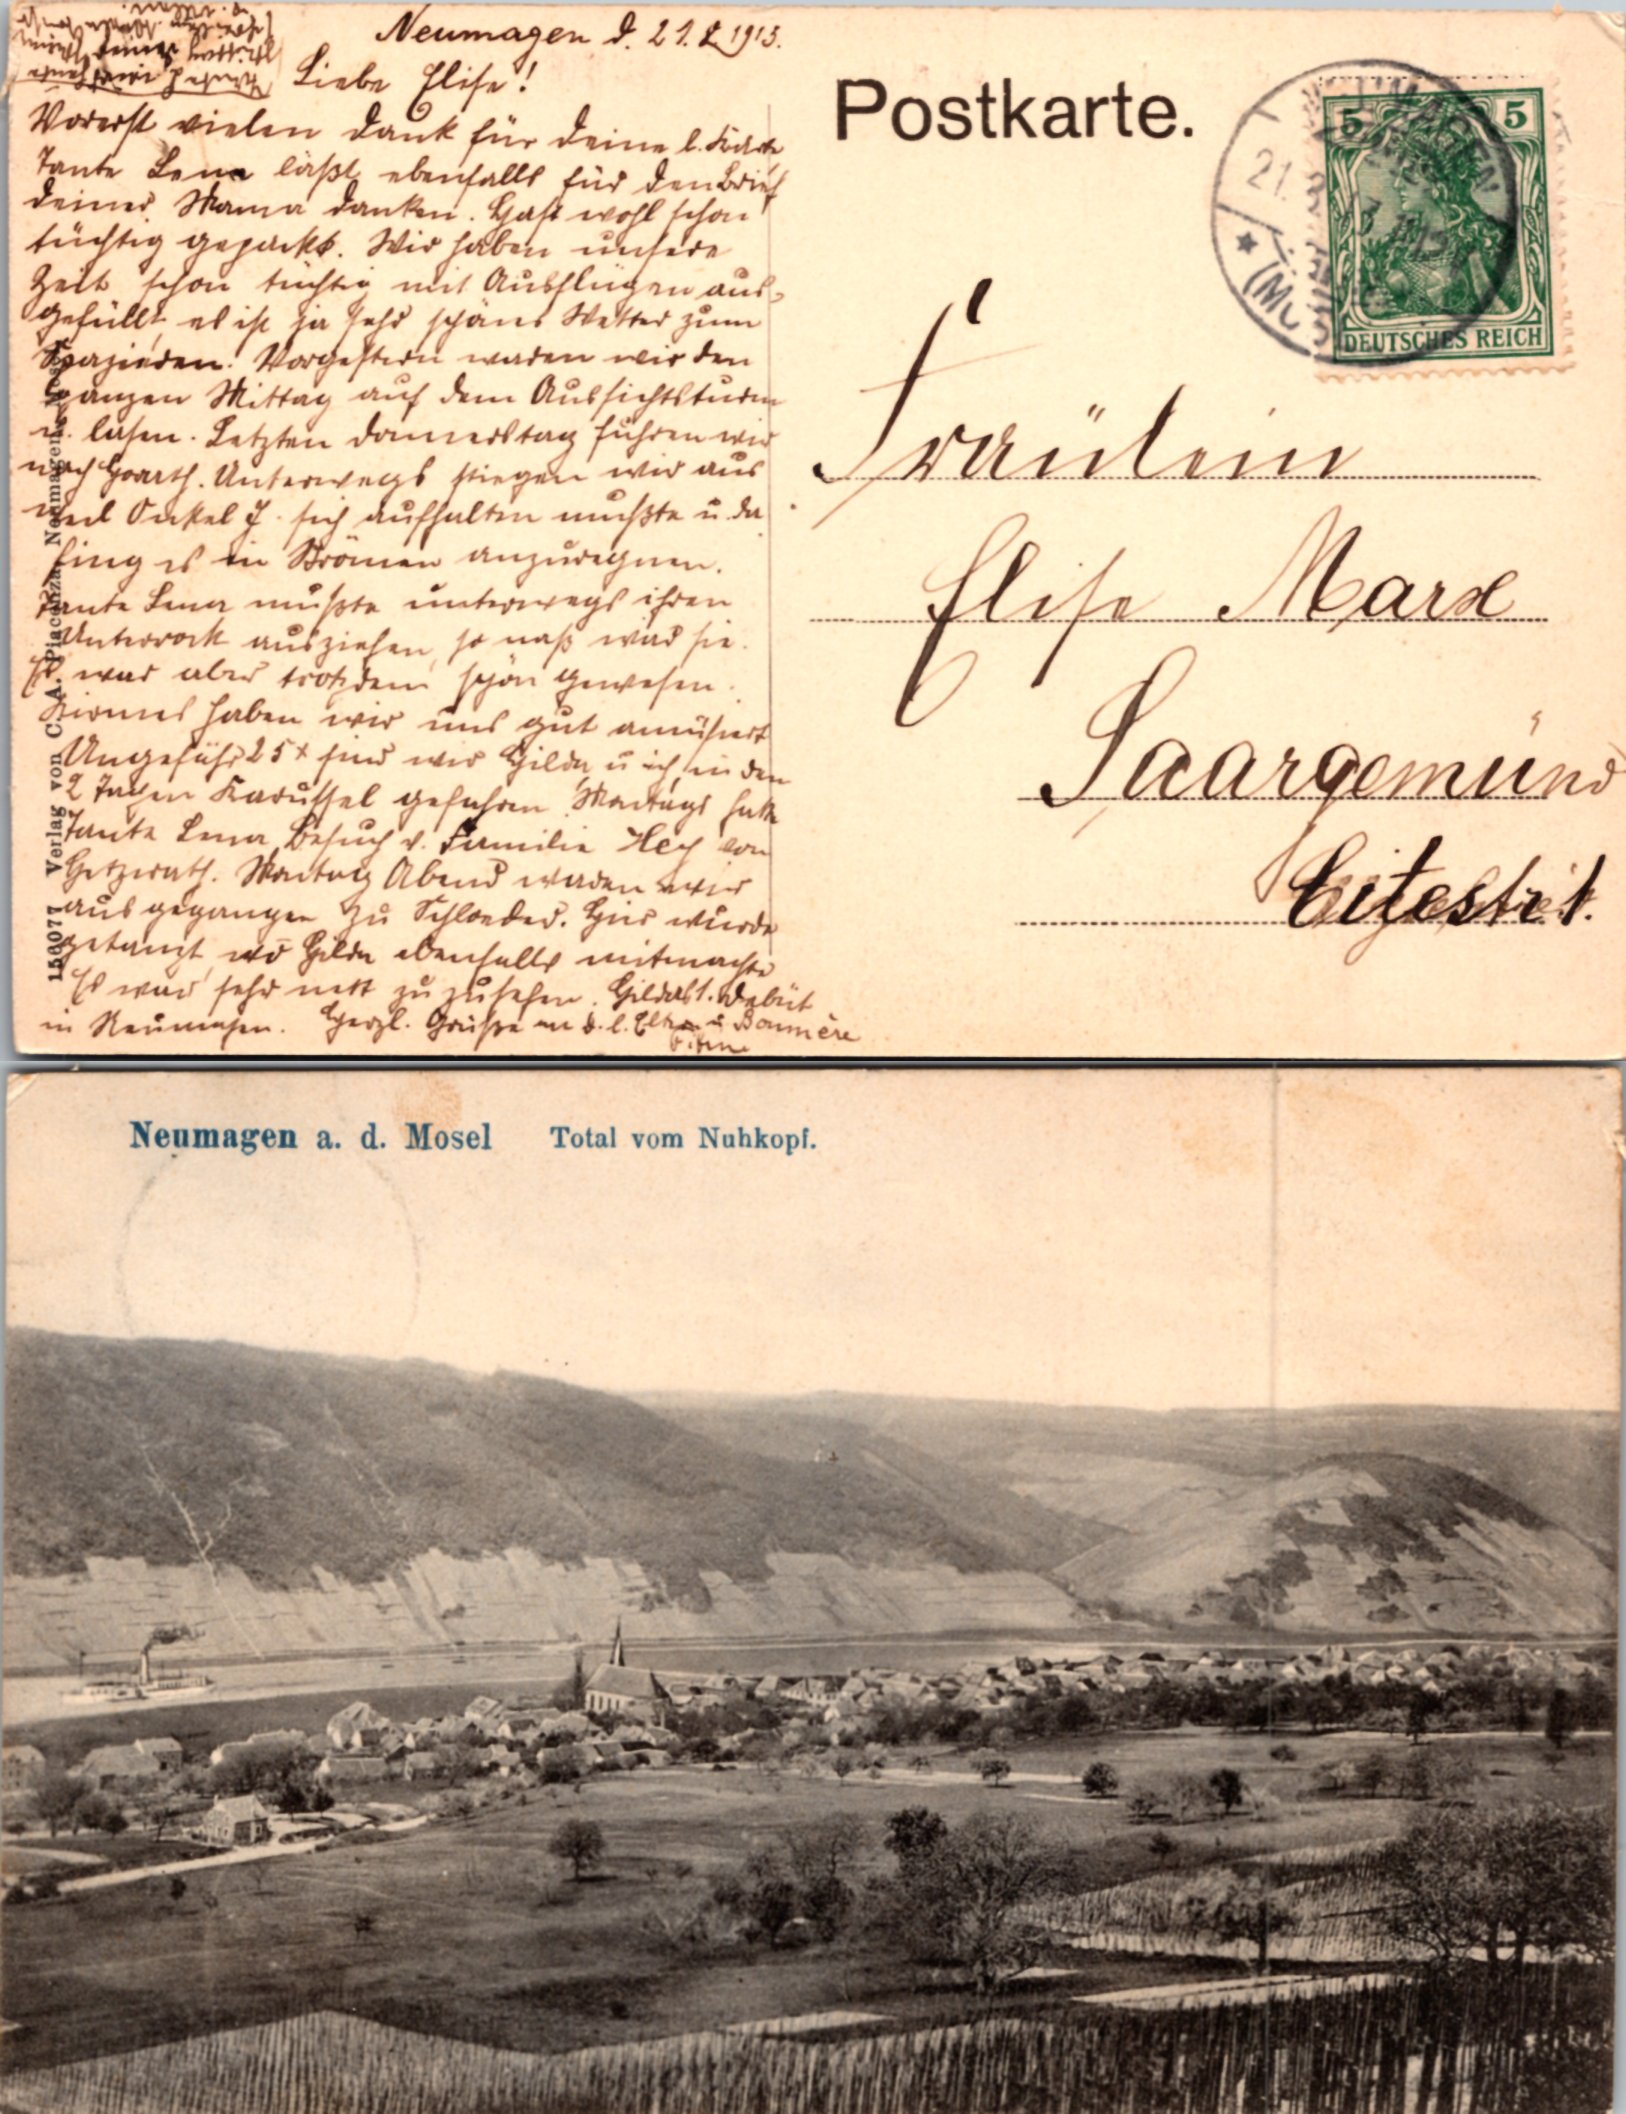 Neumagen d. 21.8.1913.
Liebe Elise!
Vorerst vielen Dank für Deine l. Karte
Tante Lena läßt ebenfalls für den Brief
Deiner Mama danken. Hast wohl schon
tüchtig gepackt. Wir haben unsere
Zeit schon tüchtig mit Ausflügen aus-
gefüllt es ist ja sehr schönes Wetter zum
Spazieren. Vorgestern waren wir den
ganzen Mittag auf dem Aussichtsturm
u. lasen. Letzten Donnerstag fuhren wir
nach Horath. Unterwegs stiegen wir aus
weil Onkel J. sich aufhalten mußte u. da
fing es in Strömen anzuregnen.
Tante Lena mußte unterwegs ihren
Unterrock ausziehen, so naß war sie.
Es war aber trotzdem schön gewesen.
Kirmes haben wir uns gut amüsiert
Ungefähr 25 x sind wir Hilda u ich, in den
2 Tagen Karussel gefahren. Montags hatte
Tante Lena Besuch v. Familie Hey von
Hetzerath. Montag Abend waren wir
ausgegangen zu Schloeder. Hier wurde
getanzt, wo Hilda ebenfalls mitmachte
Es war sehr nett zu zusehen. Hildas 1. Debüt
in Neumagen. Herzl. Grüße an d. l. Eltern u Bonmère
156077 Verlag von C. A. Piacenza, Neumagen a. Mosel
Postkarte.
5 5
DEUTSCHES REICH
NEUMAGEN
21. 8. 13
(MOSEL)
Fräulein
Elise Marx
Saargemünd
Citestr 1.
Neumagen a. d. Mosel Total vom Nuhkopf.